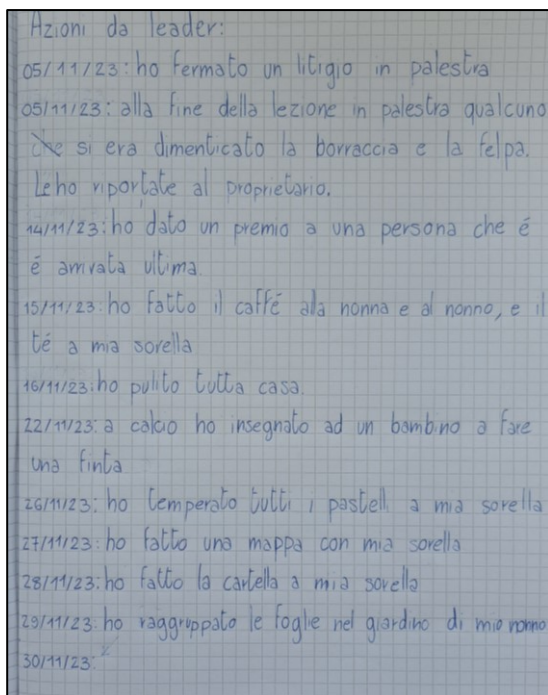 Azioni da leader:
05/11/23: ho fermato un litigio in palestra
05/11/23: alla fine della lezione in palestra qualcuno
che si era dimenticato la borraccia e la felpa.
Le ho riportate al proprietario.
14/11/23: ho dato un premio a una persona che é
é arrivata ultima.
15/11/23: ho fatto il caffé alla nonna e al nonno, e il
té a mia sorella
16/11/23: ho pulito tutta casa.
22/11/23: a calcio ho insegnato ad un bambino a fare
una finta
26/11/23: ho temperato tutti i pastelli a mia sorella
27/11/23: ho fatto una mappa con mia sorella
28/11/23: ho fatto la cartella a mia sorella
29/11/23: ho raggruppato le foglie nel giardino di mio nonno
30/11/23: